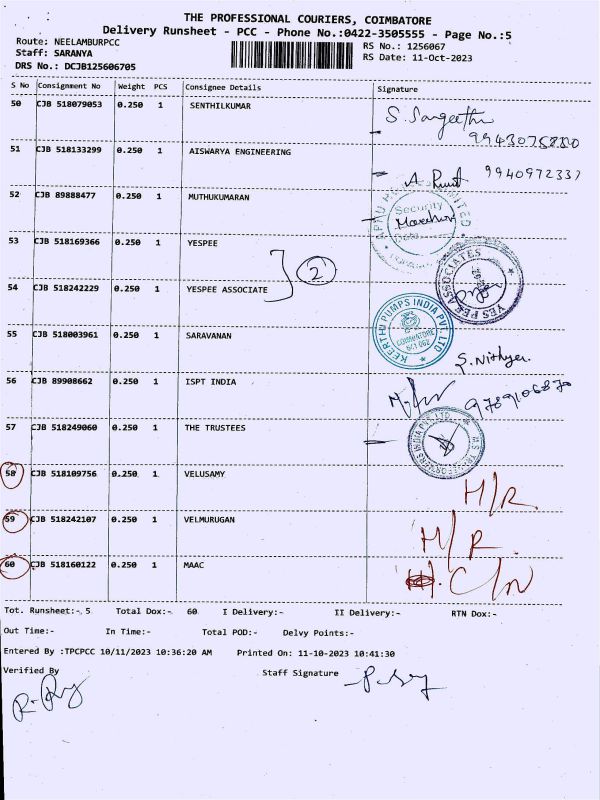 THE PROFESSIONAL COURIERS, COIMBATORE
Delivery Runsheet - PCC - Phone No.:0422-3505555 - Page No.:5
Route: NEELAMBURPCC
RS No.: 1256067
Staff: SARANYA
RS Date: 11-Oct-2023
DRS No.: DCJB125606705
S No Consignment No Weight PCS Consignee Details Signature
50 CJB 518079053 0.250 1 SENTHILKUMAR
S. Sangeetha
51 CJB 518133299 0.250 1 AISWARYA ENGINEERING
9940972337
52 CJB 89888477 0.250 1 MUTHUKUMARAN
Security
53 CJB 518169366 0.250 1 YESPEE
2
54 CJB 518242229 0.250 1 YESPEE ASSOCIATE
YES PEE ASSOCIATES
55 CJB 518003961 0.250 1 SARAVANAN
KEERTHI PUMPS INDIA PVT. LTD
COIMBATORE
641 062
S. Nithya
56 CJB 89908662 0.250 1 ISPT INDIA
9789106870
57 CJB 518249060 0.250 1 THE TRUSTEES
58 CJB 518109756 0.250 1 VELUSAMY
H/R.
59 CJB 518242107 0.250 1 VELMURUGAN
H/R.
60 CJB 518160122 0.250 1 MAAC
C/N
Tot. Runsheet:- 5 Total Dox:- 60 I Delivery:- II Delivery:- RTN Dox:-
Out Time:- In Time:- Total POD:- Delvy Points:-
Entered By :TPCPCC 10/11/2023 10:36:20 AM Printed On: 11-10-2023 10:41:30
Verified By Staff Signature